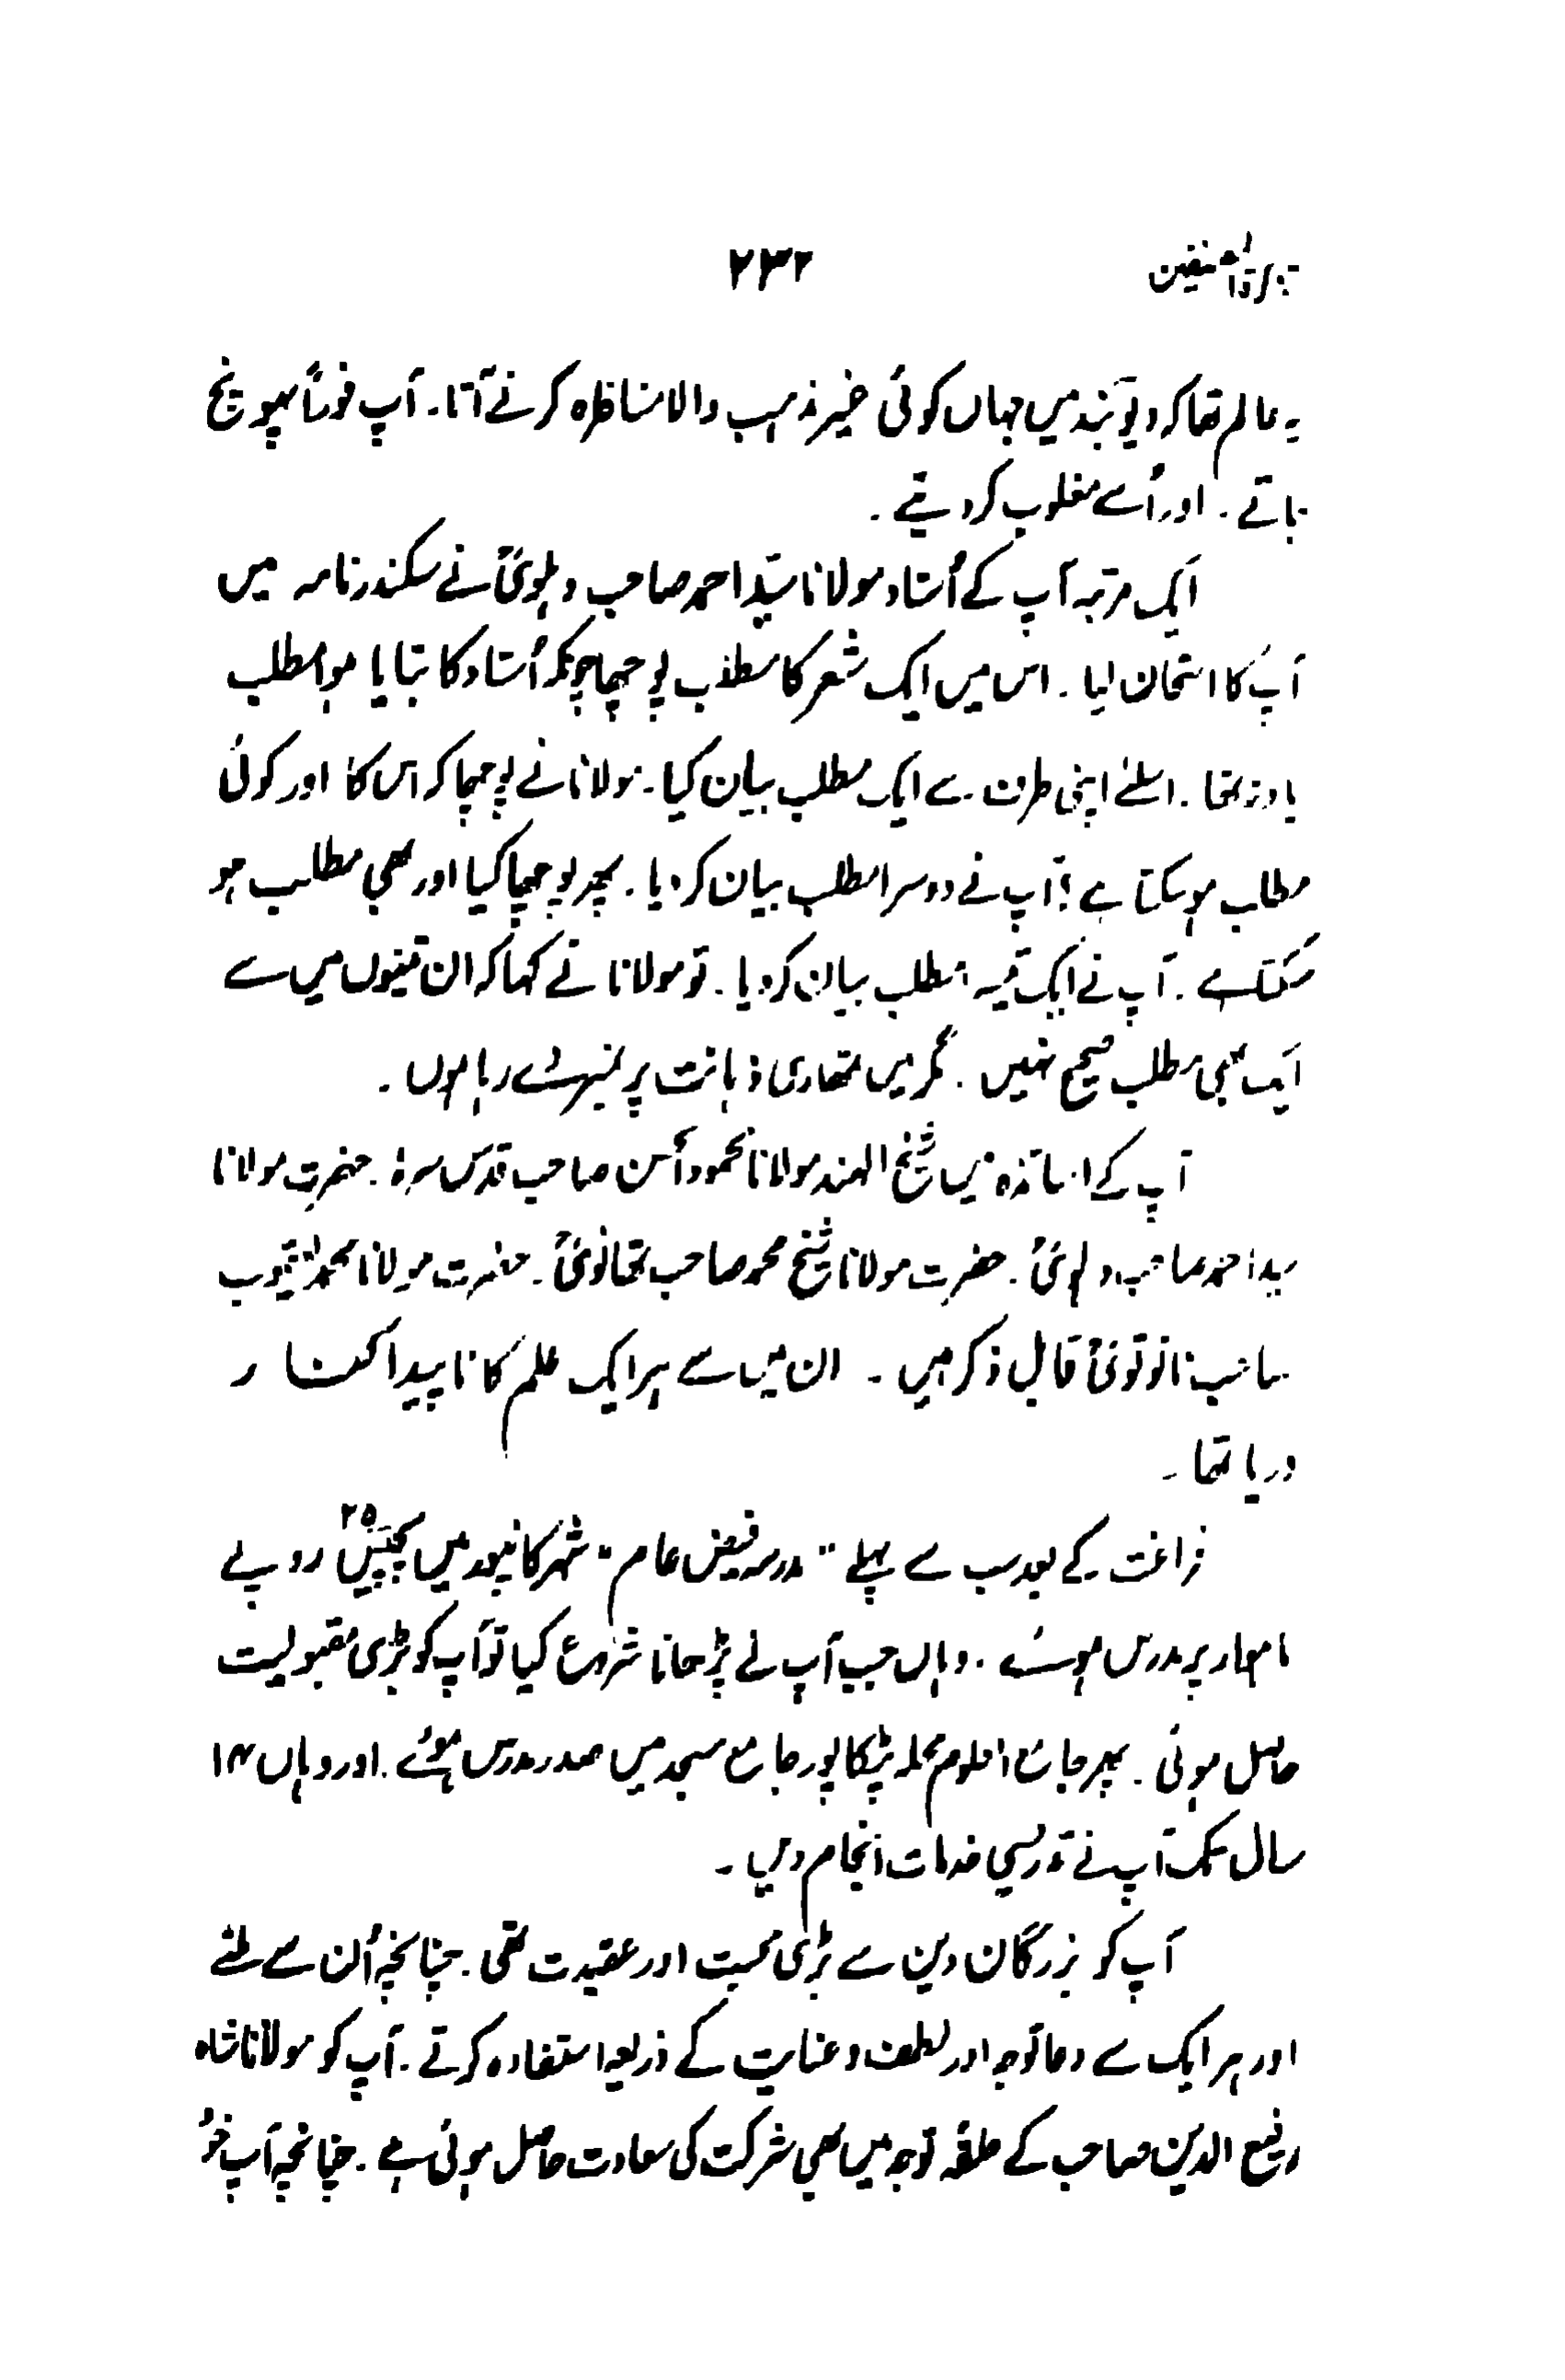 تذکرۃ المصنفین ۲۳۲
یہ عالم تھا کہ دیوبند میں جہاں کوئی غیر مذہب والا مناظرہ کرنے آتا۔ آپ فوراً پہونچ
جاتے۔ اور اُسے مغلوب کر دیتے۔
ایک مرتبہ آپ کے اُستاد مولانا سیّد احمد صاحب دہلویؒ نے سکندر نامہ میں
آپ کا امتحان لیا۔ اس میں ایک شعر کا مطلب پوچھا چونکہ اُستاد کا بتایا ہوا مطلب
یاد نہ تھا۔ اسلئے اپنی طرف سے ایک مطلب بیان کیا۔ مولانا نے پوچھا کہ اس کا اور کوئی
مطلب ہو سکتا ہے؟ آپ نے دوسرا مطلب بیان کر دیا۔ پھر پوچھا کیا اور بھی مطلب ہو
سکتا ہے۔ آپ نے ایک تیسرا مطلب بیان کر دیا۔ تو مولانا نے کہا کہ ان تینوں میں سے
ایک بھی مطلب صحیح نہیں۔ مگر میں تمھاری ذہانت پر نمبر دے رہا ہوں۔
آپ کے اساتذہ میں شیخ الہند مولانا محمود الحسن صاحب قدس سرہٗ۔ حضرت مولانا
سید احمد صاحب دہلویؒ۔ حضرت مولانا شیخ محمد صاحب تھانویؒ۔ حضرت مولانا محمد یعقوب
صاحب نانوتویؒ قابل ذکر ہیں۔ ان میں سے ہر ایک علم کا ناپیدا کنار
دریا تھا۔
فراغت کے بعد سب سے پہلے "مدرسہ فیض عام" شہر کانپور میں پچیس ۲۵ روپے
ماہوار پر مدرس ہوئے۔ وہاں جب آپ نے پڑھانا شروع کیا تو آپ کو بڑی مقبولیت
حاصل ہوئی۔ پھر جامع العلوم محلہ پٹکاپور جامع مسجد میں صدر مدرس ہوئے۔ اور وہاں ۱۴
سال تک آپ نے تدریسی خدمات انجام دیں۔
آپ کو بزرگان دین سے بڑی محبت اور عقیدت تھی۔ چنانچہ اُن سے ملتے
اور ہر ایک سے دعا توجہ اور لطف و عنایت کے ذریعہ استفادہ کرتے۔ آپ کو مولانا شاہ
رفیع الدین صاحب کے حلقہ توجہ میں بھی شرکت کی سعادت حاصل ہوئی ہے۔ چنانچہ آپ خود